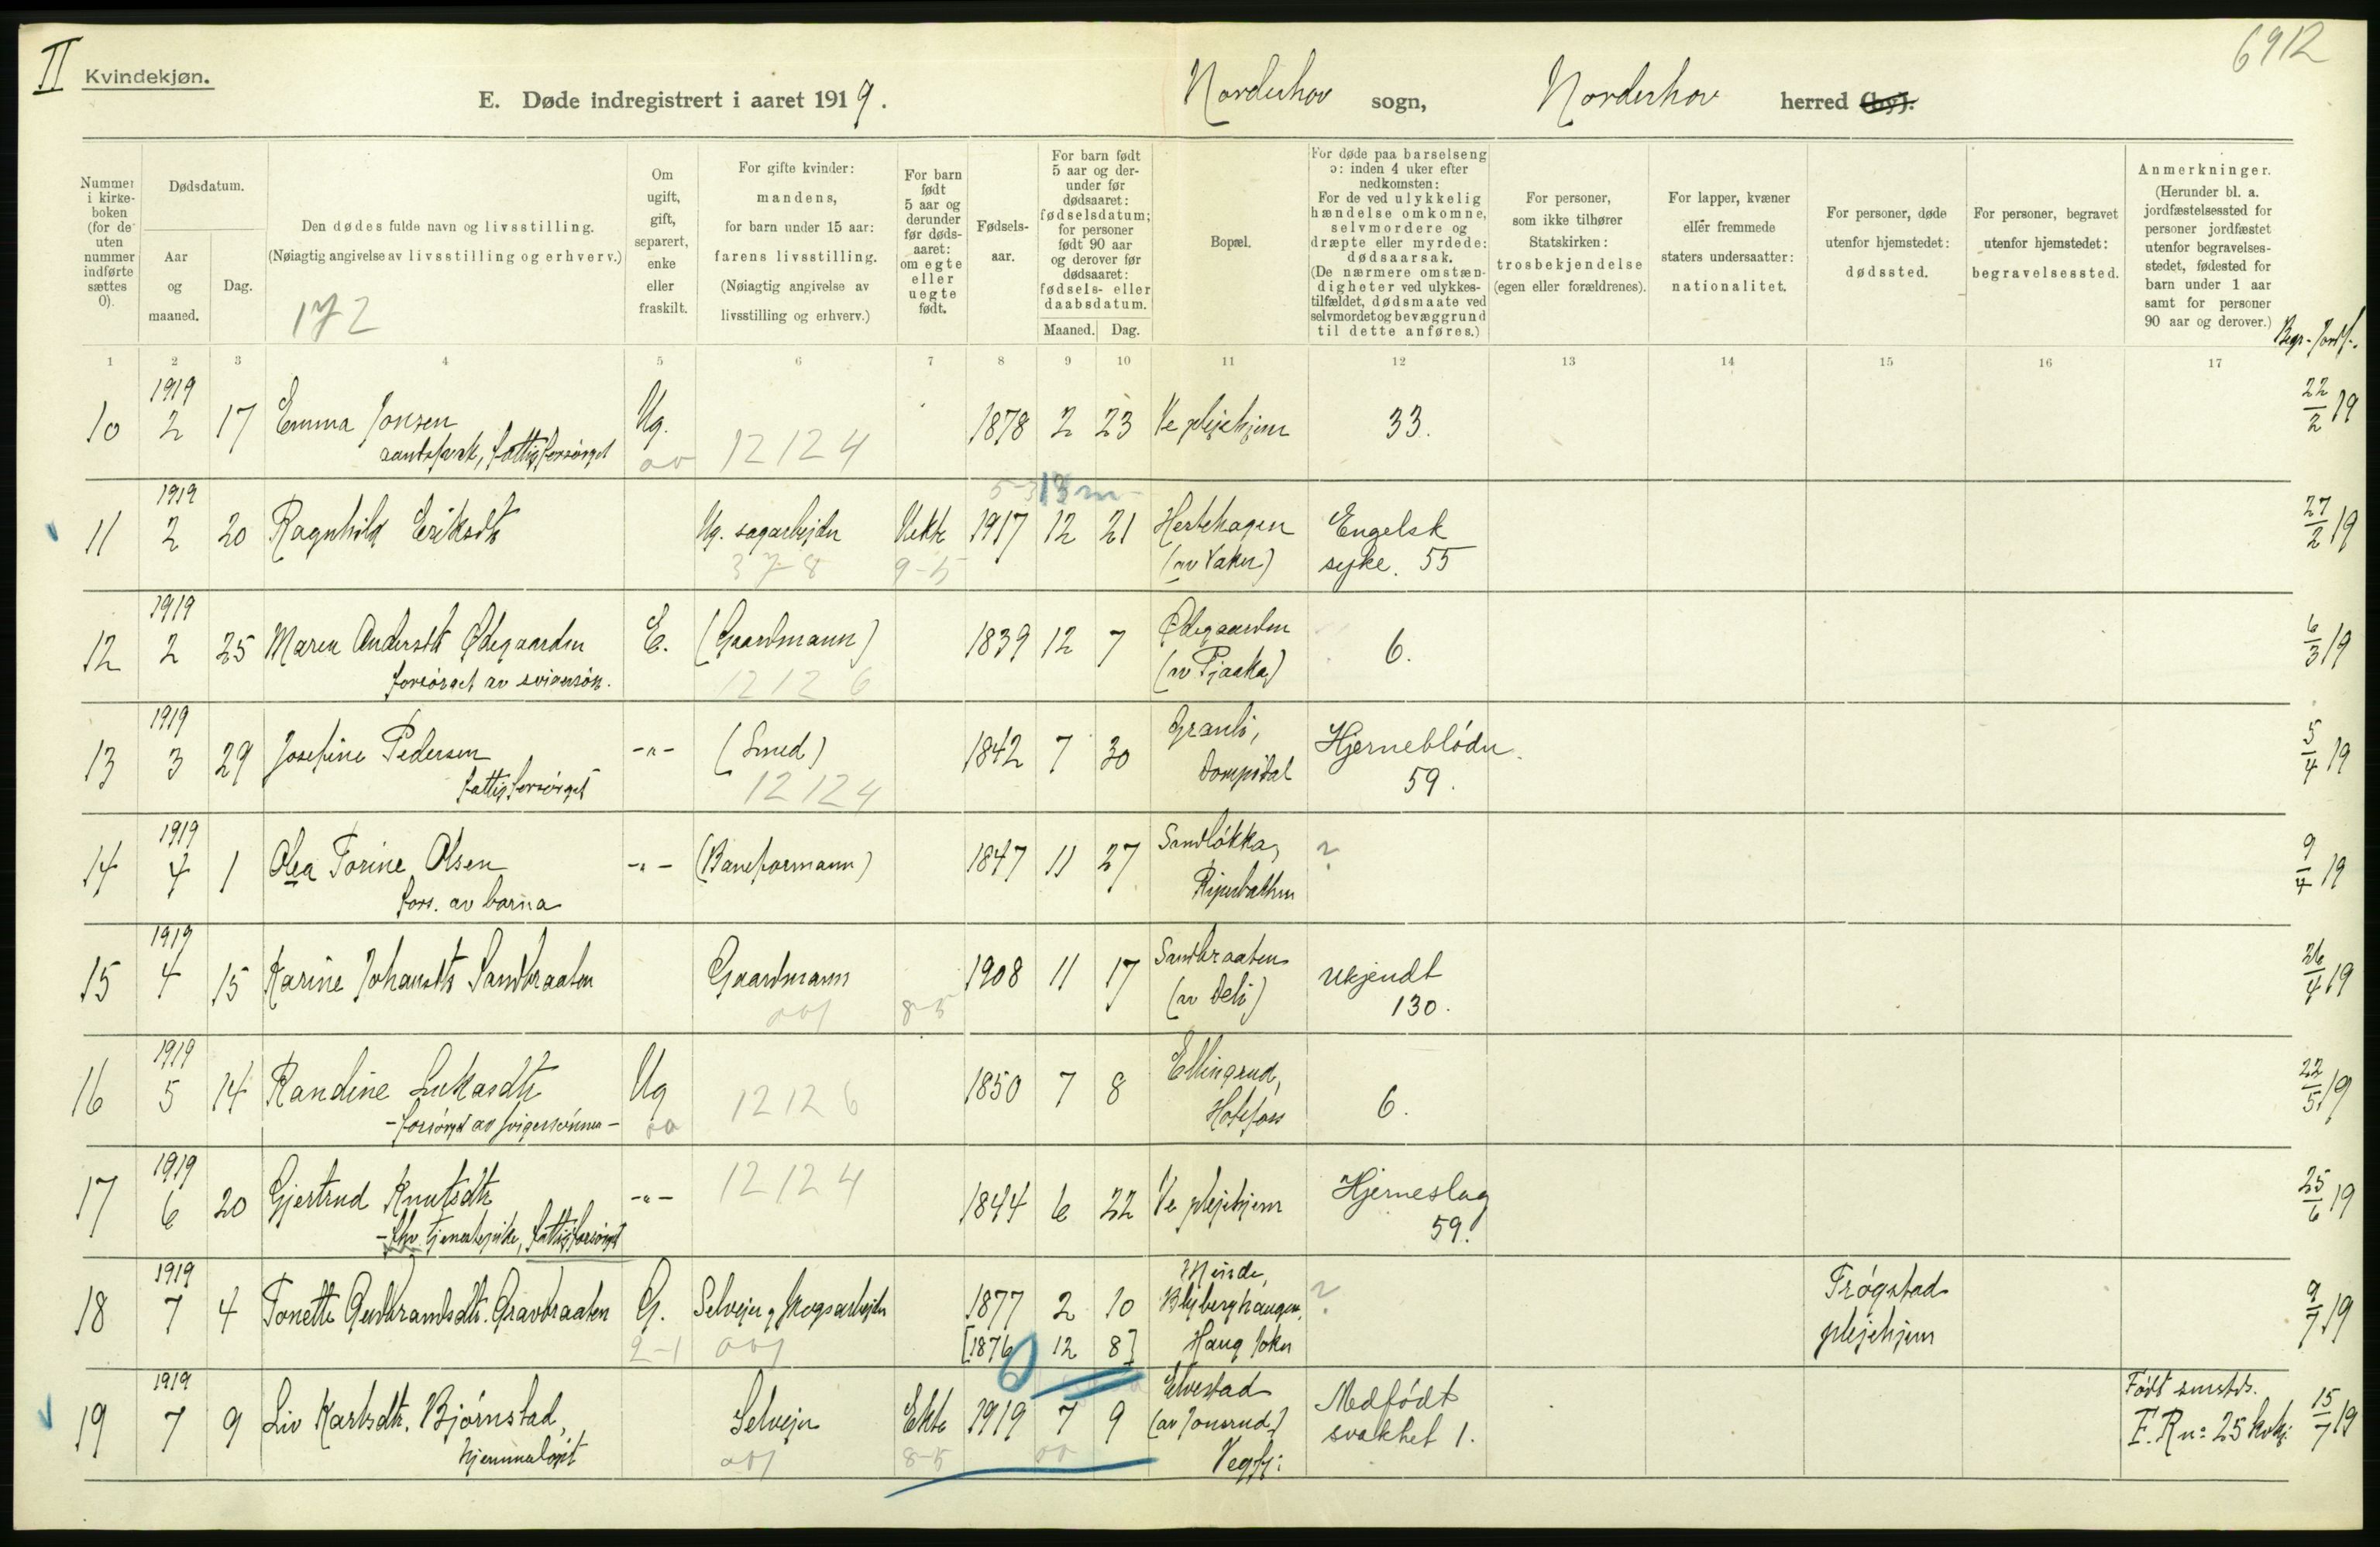 II Kvindekjøn.
6912
E. Døde indregistrert i aaret 1919. Norderhov sogn, Norderhov herred (by).
Nummer i kirkeboken (for de uten nummer indførte sættes 0).
Dødsdatum.
Aar og maaned.
Dag.
Den dødes fulde navn og livsstilling.
(Nøiagtig angivelse av livsstilling og erhverv.)
172
Om ugift, gift, separert, enke eller fraskilt.
For gifte kvinder: mandens, for barn under 15 aar: farens livsstilling. (Nøiagtig angivelse av livsstilling og erhverv.)
For barn født 5 aar og derunder før dødsaaret: om egte eller uegte født.
Fødselsaar.
For barn født 5 aar og derunder før dødsaaret: fødselsdatum; for personer født 90 aar og derover før dødsaaret: fødsels- eller daabsdatum.
Maaned. Dag.
Bopæl.
For døde paa barselseng ɔ: inden 4 uker efter nedkomsten: For de ved ulykkelig hændelse omkomne, selvmordere og dræpte eller myrdede: dødsaarsak. (De nærmere omstændigheter ved ulykkestilfældet, dødsmaate ved selvmordet og bevæggrund til dette anføres.)
For personer, som ikke tilhører Statskirken: trosbekjendelse (egen eller forældrenes).
For lapper, kvæner eller fremmede staters undersaatter: nationalitet.
For personer, døde utenfor hjemstedet: dødssted.
For personer, begravet utenfor hjemstedet: begravelsessted.
Anmerkninger. (Herunder bl. a. jordfæstelsessted for personer jordfæstet utenfor begravelsesstedet, fødested for barn under 1 aar samt for personer 90 aar og derover.)
Begr.- Jordf.
1 2 3 4 5 6 7 8 9 10 11 12 13 14 15 16 17
10 1919 2 17 Emma Jonsen Ug. 1878 2 23 Ve plejehjem 33. 22/2 19
aandssvak, fattigforsørget 12 12 4
11 1919 2 20 Ragnhild Eriksdtr Ug. sagarbejder Uekte 1917 12 21 Hestehagen Engelsk 27/2 19
13 m
37-8 9-5 (av Vaker) syke. 55
12 1919 2 25 Maren Andersdtr Ødegaarden E. (Gaardmann) 1839 12 7 Ødegaarden 6. 6/3 19
forsørget av svigersøn. 12 12 6 (av Tjaaka)
13 1919 3 29 Josefine Pedersen -"- (Smed) 1842 7 30 Granli, Hjerneblødn. 5/4 19
fattigforsørget 12 12 4 Dompidal 59.
14 1919 4 1 Olea Torine Olsen -"- (Baneformann) 1847 11 27 Sandløkka, ? 9/4 19
fors. av barna
15 1919 4 15 Karine Johansdtr Sandbraaten Gaardmann 1908 11 17 Sandbraaten ukjendt 26/4 19
001 8-5 (av Deli) 130.
16 1919 5 14 Randine Lukasdtr Ug 12 12 6 1850 7 8 Ellingsrud, 6. 22/5 19
- forsørget av svigersønnen - 00 Hofsfoss
17 1919 6 20 Gjertrud Knutsdtr -"- 12 12 4 1844 6 22 Ve plejehjem Hjerneslag 25/6 19
- fhv. tjenestepike, fattigforsørget 59.
18 1919 7 4 Tonette Gudbrandsdtr. Gravbraaten G. Selvejer, skogsarbejder 1877 2 10 Minde, ? Frøgstad 9/7 19
2-1 001 [1876 12 8] Haug sokn plejehjem
19 1919 7 9 Liv Karlsdtr. Bjørnstad, Selvejer Ekte 1919 7 9 Elvestad Medfødt Født smstds. 15/7 19
hjemmeløpt 001 8-5 00 (av Jonsrud) svakhet 1. F. R n: 25 kvkj.